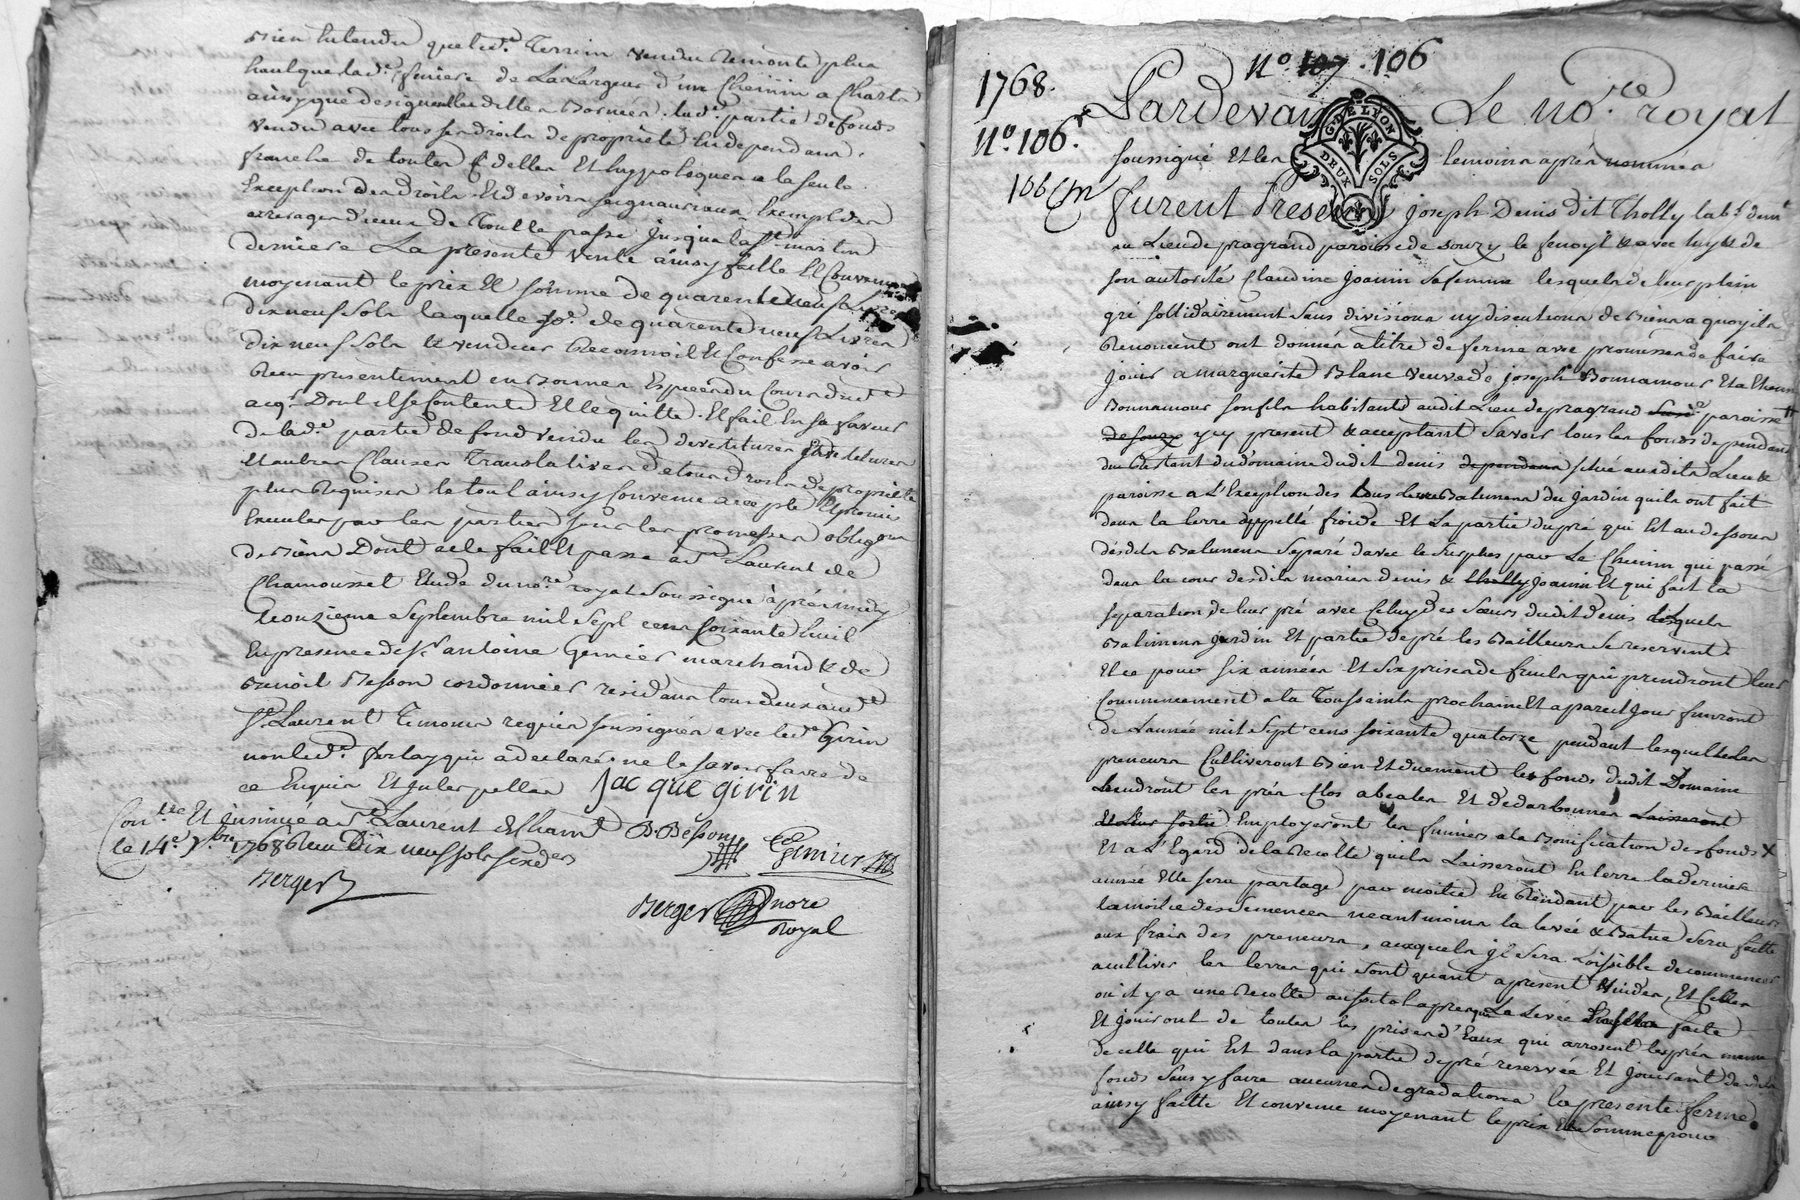 Bien Entendu que led.t Terrein vendu Remonte plus
hault que lad.e feniere de La Largeur d'un Chemin a Charla
ainsy que designée lad.e partie de fonds
vendu avec tous ses droits de propriété Independans
franche de toutes et hypoteques a la seule
Exception des droits Et devoirs seigneuriaux Exempt des
arrerages d'iceux de Tout le passé jusqu'a la s.t martin
derniere La presente vente ainsy faitte Et Convenue
moyenant le prix Et somme de quarente neuf livres
dix neuf sols laquelle so.e de quarente neuf Livres
dix neuf sols le vendeur Reconnoit Et Confesse avoir
Reçu presentement en Bonnes Especes du Cours dud.t
acq.r Dont il se Contente Et le quitte. Et fait En sa faveur
de lad.e partie de fond vendu les devetitures Investitures
Et autres Clauses Translatives de tous droits de propriété
plus Requises le tout ainsy Convenu accepté Et promis
Executer par les parties sous les promesses obligaons
de Biens Dont acte fait Et passé a s.t Laurent de
Chamousset Etude du no.re royal Soussigné après midy
Le onzieme Septembre mil Sept cens soixante huit
En presence de s.r antoine Genier marchand & de
Benoit Besson cordonnier residans tous deux aud.t
S.t Laurent Temoins requis soussignés avec led.t Girin
non led.t Ferlay qui a declaré ne le savoir faire de
ce Enquis Et Interpellés Jacque girin
Con.lle Et insinué a s.t Laurent de Cham.t B. Besson
le 14.e 7bre 1768 Reçu Dix neuf sols six d.ers Genier
Berger
Berger nore
Royal
1768. N.o 107. 106
N.o 106.
Pardevant Le no.re royal
G. DE LYON
DEUX SOLS
soussigné Et les temoins après nommés
furent Presens Joseph Denis dit Tholly lab.r dem.t
au Lieu de pragrand paroisse de Souzy le fenoyl & avec luy & de
son autorité Claudine Joannin sa femme lesquels de leur plein
gré sollidairement sans division ny discution de Biens a quoy ils
Renoncent ont donné a titre de ferme avec promesse de faire
Jouir a marguerite Blanc veuve de Joseph Bonnamour Et a
Bonnamour son fils habitants audit Lieu de pragrand paroisse
de souzy icy present & acceptant Savoir tous les fonds dependans
du Restant du domaine dudit denis dependans situé auxdits Lieu &
paroisse a L'Exception des Batimens du jardin qu'ils ont fait
dans la terre appellé froide Et La partie du pré qui Est au dessous
desdits Batimens Separé d'avec le surplus par Le Chemin qui passe
dans la cour desdits mariés denis & tholly Joannin Et qui fait la
separation de leur pré avec Celuy des Sœurs dudit denis Lesquels
Batimens Jardin Et partie de pré les Bailleurs Se reservent
Et ce pour six années Et six prises de fruits qui prendront leur
Commencement a la Toussaints prochaine Et a pareil Jour finiront
de L'année mil Sept cens soixante quatorze pendant lesquelles les
preneurs Cultiveront Bien Et duement les fonds dudit Domaine
tiendront les prés Clos abeales Et d'edarbonnés Laisseront
Employeront les fumiers a la Bonification des fonds
Et a L'Egard de la Recolte qu'ils Laisseront En terre la derniere
année Elle sera partagé par moitié En Rendant par les Bailleurs
la moitié des semences neantmoins la levée & Batue sera faitte
aux frais des preneurs, auxquels il sera Loisible de commencer
a cultiver les terres qui sont quant a present vuides, Et Celles
ou il y a une Recolte aussitot apres que La Levée faite
Et Jouiront de toutes les prises d'Eaux qui arrosent les prés meme
de celle qui Est dans la partie de pré reservée Et Jouiront desdits
fonds sans y faire aucunes degradations la presente ferme
ainsy faitte Et convenue moyenant le prix & Somme pour